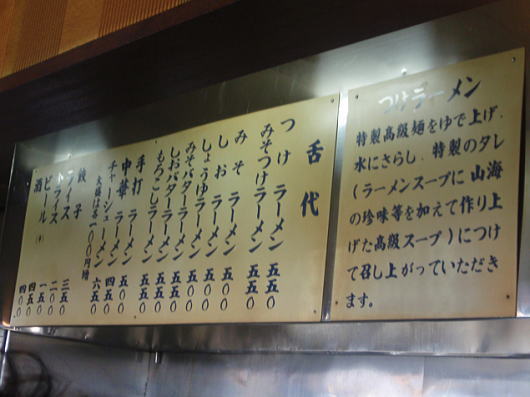 つけラーメン
特製高級麺をゆで上げ、
水にさらし、特製のタレ
(ラーメンスープに山海
の珍味等を加えて作り上
げた高級スープ)につけ
て召し上がっていただき
ます。
舌代
つけラーメン 五五〇
みそつけラーメン 五五〇
みそラーメン 五〇〇
しおラーメン 五〇〇
しょうゆラーメン 五〇〇
みそバターラーメン 五五〇
しおバターラーメン 五五〇
もろこしラーメン 五五〇
手打ラーメン 五五〇
中華ラーメン 五〇〇
チャーシューメン 六五〇
大盛は各一〇〇円増
餃子 三五〇
ライス 二〇〇
半ライス 一五〇
ビール 四五〇
酒 四〇〇